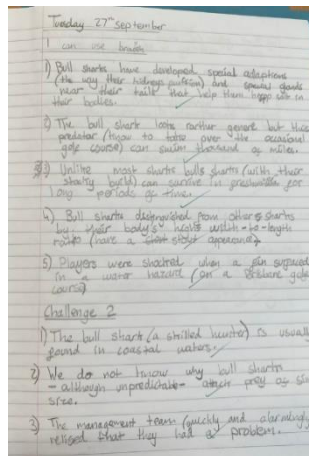 Tuesday 27th September
I can use
1) Bull sharks have developed special adaptions
(the way their kidneys function) and special glands
near their tails that help them keep salt in
their bodies.
2) The bull shark looks rather but this
predator (know to take over the occasional
golf course) can swim thousand of miles.
3) Unlike most sharks bulls sharks (with their
stocky build) can survive in freshwater for
long periods of time.
4) Bull sharks distinguished from other sharks
by their body's width-to-length
(have a stout appearance)
5) Players were shocked when a fin surfaced
in a water hazard (on a Brisbane golf
course)
Challenge 2
1) The bull shark (a skilled hunter) is usually
found in coastal waters.
2) We do not know why bull sharks
- although unpredictable - attack prey
size.
3) The management team (quickly and alarmingly
relised that they had a problem.